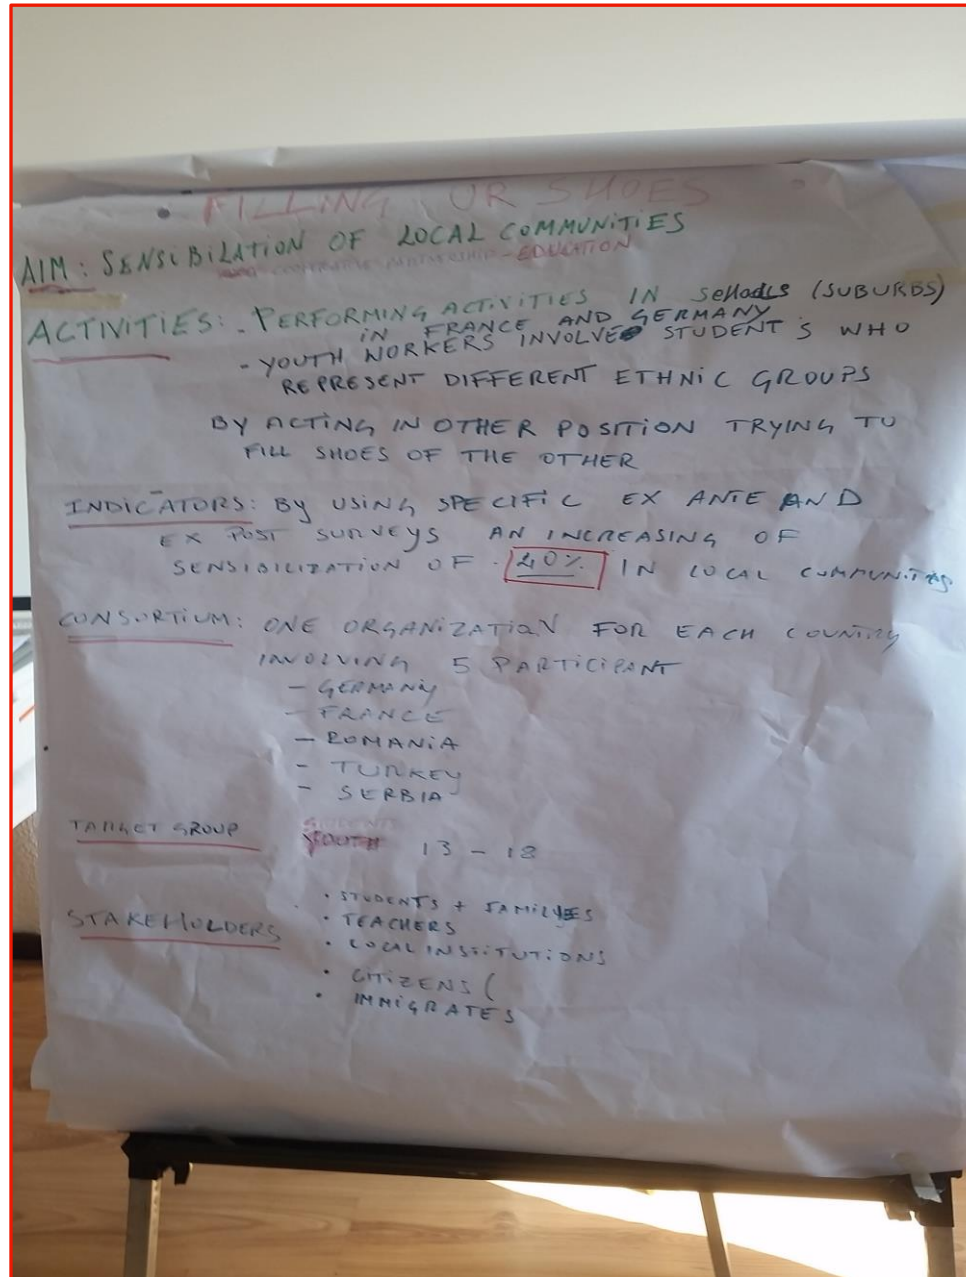 • FILLING UR SHOES
AIM: SENSIBILATION OF LOCAL COMMUNITIES
- EDUCATION
ACTIVITIES: - PERFORMING ACTIVITIES IN SCHOOLS (SUBURBS)
IN FRANCE AND GERMANY
- YOUTH WORKERS INVOLVE STUDENT'S WHO
REPRESENT DIFFERENT ETHNIC GROUPS
BY ACTING IN OTHER POSITION TRYING TO
FILL SHOES OF THE OTHER
INDICATORS: BY USING SPECIFIC EX ANTE AND
EX POST SURVEYS AN INCREASING OF
SENSIBILIZATION OF IN LOCAL COMMUNITIES
CONSORTIUM: ONE ORGANIZATION FOR EACH COUNTRY
INVOLVING 5 PARTICIPANT
- GERMANY
- FRANCE
- ROMANIA
- TURKEY
- SERBIA
TARGET GROUP YOUTH 13 - 18
STAKEHOLDERS • STUDENTS + FAMILYES
• TEACHERS
• LOCAL INSTITUTIONS
• CITIZENS (
• IMMIGRATES